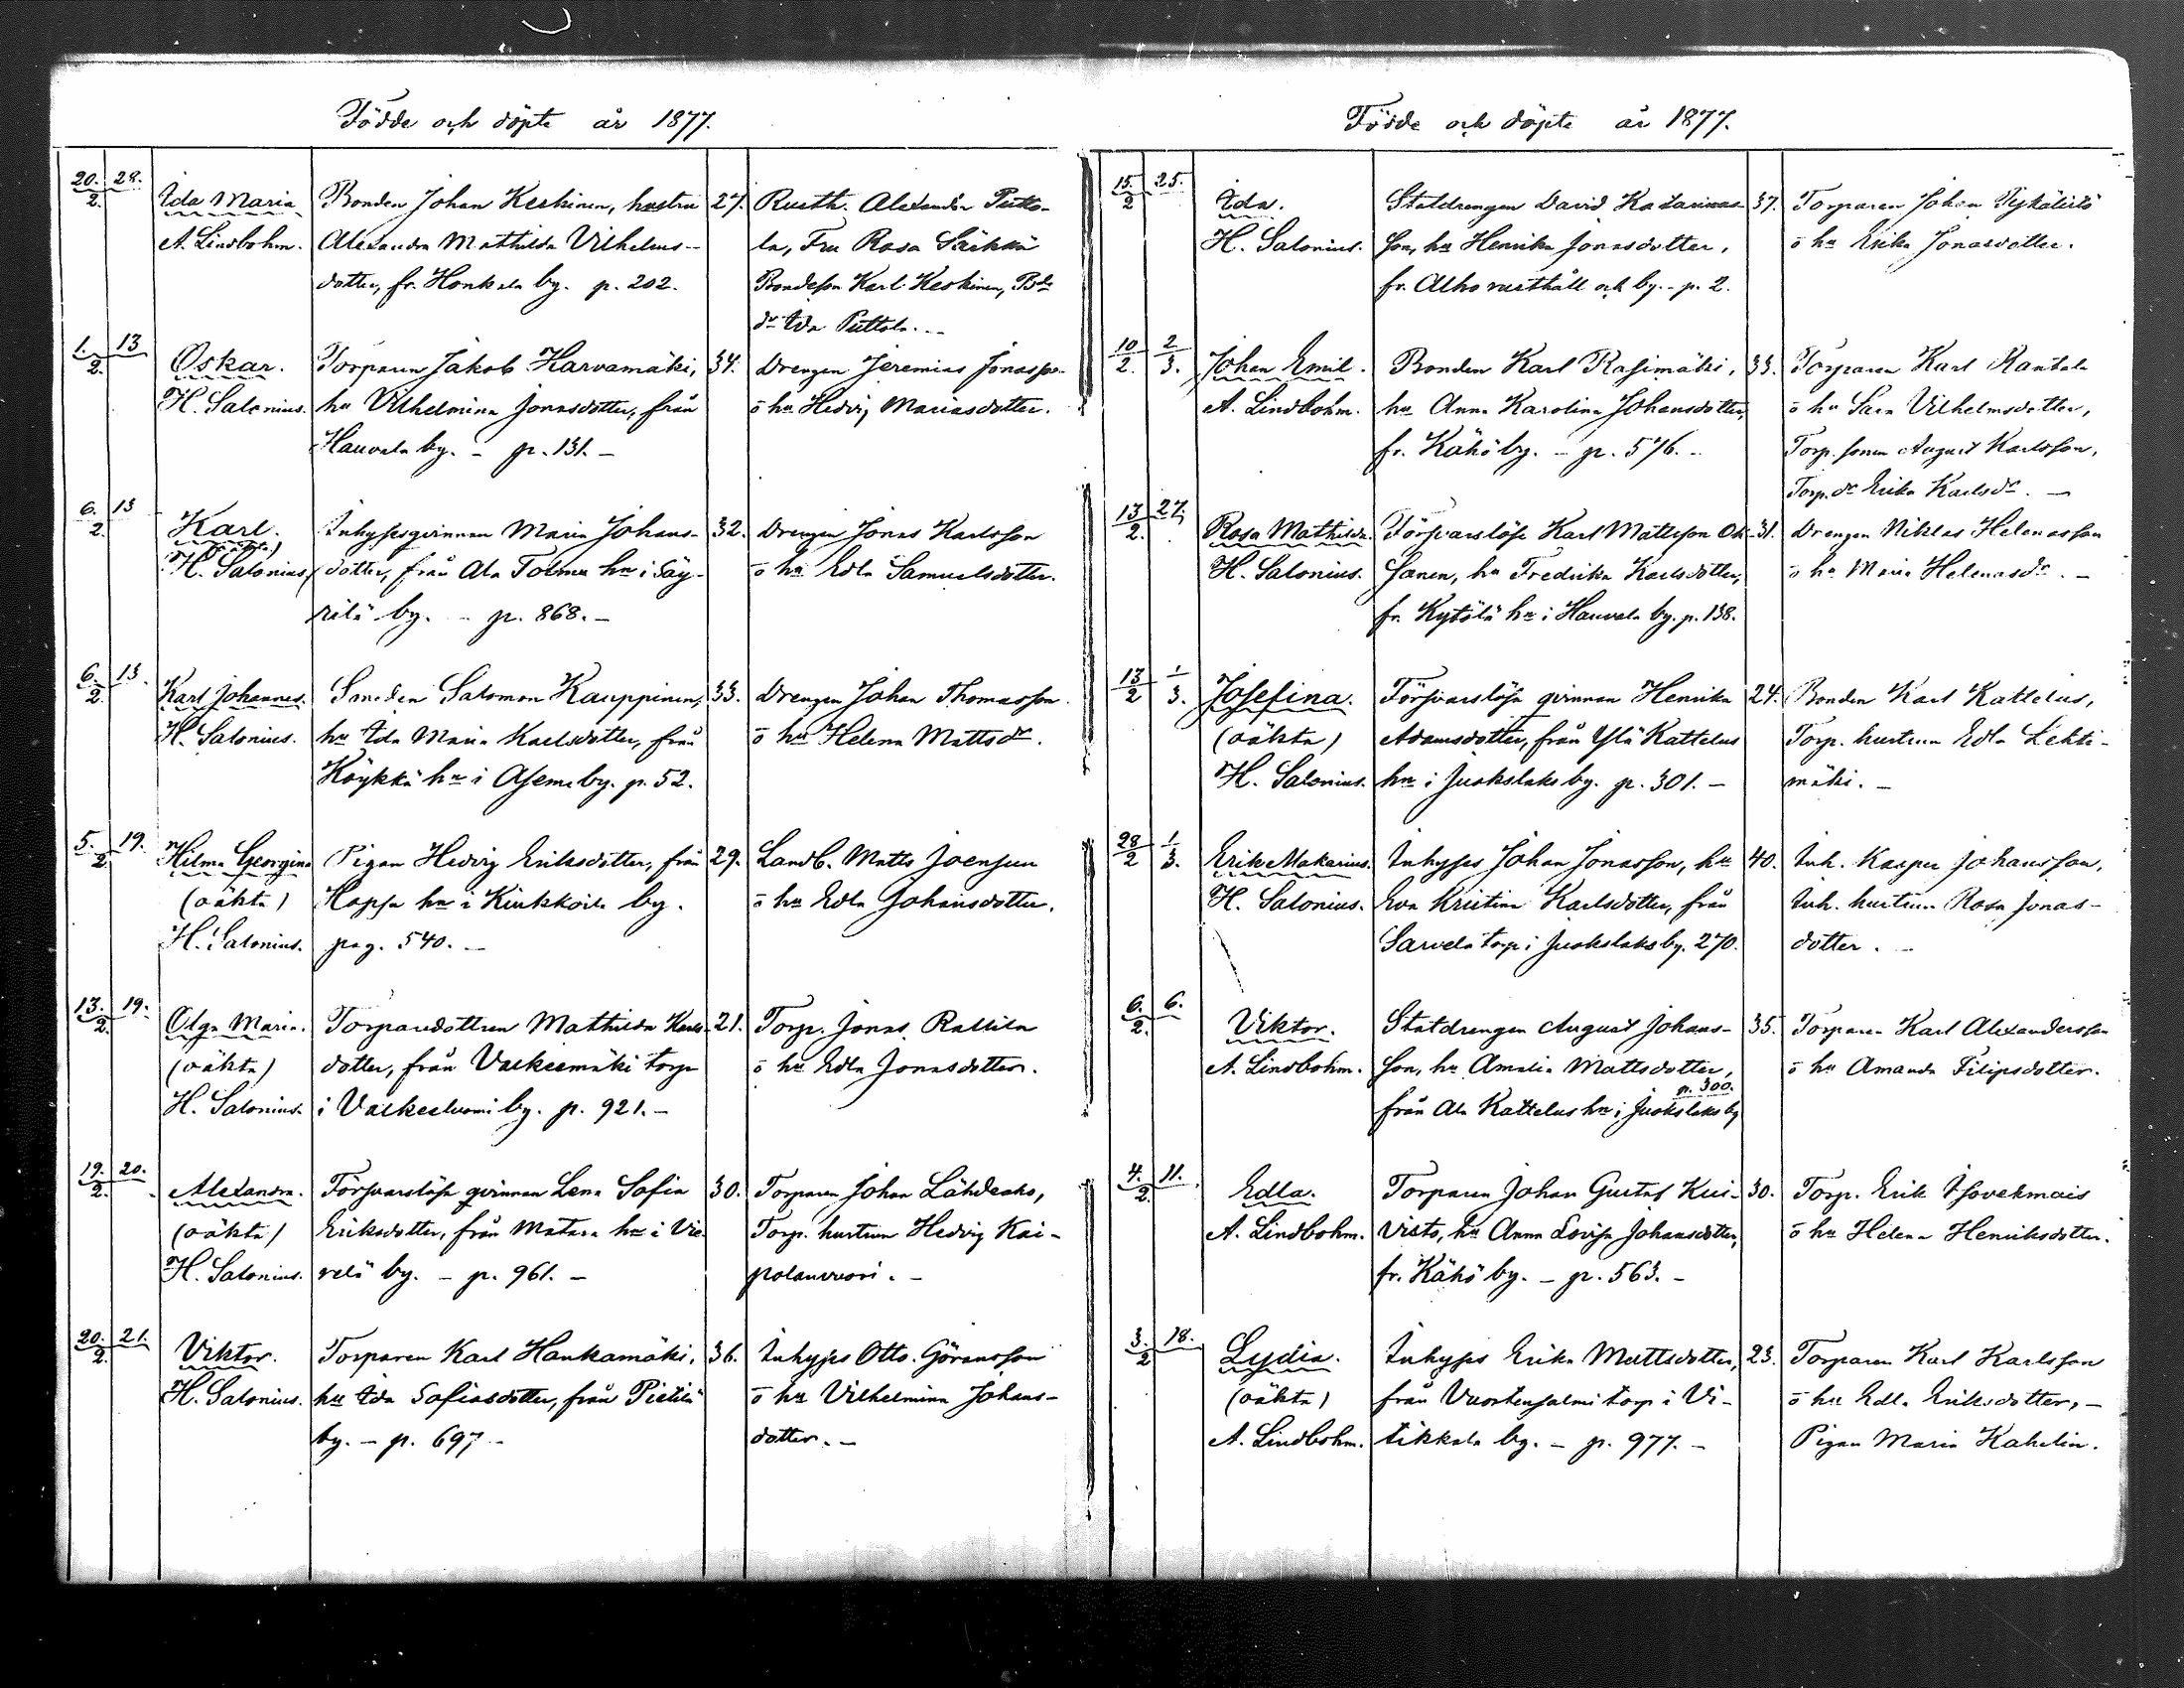 Födde och döpte år 1877.
20./2. 28. Ida Maria Bonden Johan Keskinen, hustru 27. Rusth. Alexander Putto-
A. Lindbohm. Alexandra Mathilda Vilhelms- la, Fru Rosa Särkkä
dotter, fr. Honkala by. p. 202. Bondeson Karl Keskinen, Bde
dr Ida Puttola. -
1./2. 13 Oskar. Torparen Jakob Harvamäki, 34. Drengen Jeremias Jonasson
H. Salonius. hu Vilhelmina Jonasdotter, från o hu Hedvig Mariasdotter.
Hauvala by. - p. 131. -
6./2. 13 Karl. Inhysesqvinnan Maria Johans- 32. Drengen Jonas Karlsson
(oäkta)
H. Salonius dotter, från Ala Tolmu hn i Säy- o hu Edla Samuelsdotter.
rilä by. - p. 868. -
6./2. 13. Karl Johannes. Smeden Salomon Kauppinen, 33. Drengen Johan Thomasson.
H. Salonius. hu Ida Maria Karlsdotter, från o hu Helena Mattsdr.
Köykkä hn i Asema by. p. 52.
5./2. 19. Hilma Georgina Pigan Hedvig Eriksdotter, från 29. Landb. Matts Joensuu
(oäkta) Hopsu hn i Kiukkoila by. o hu Edla Johansdotter.
H. Salonius. pag. 540. -
13./2. 19. Olga Maria. Torparedottren Mathilda Karls- 21. Torp. Jonas Rallila
(oäkta) dotter, från Valkeemäki torp o hu Edla Jonasdotter.
H. Salonius. i Valkeeluomi by. p. 921. -
19./2. 20. Alexandra. Försvarslösa qvinnan Lena Sofia 30. Torparen Johan Lähdeaho,
(oäkta) Eriksdotter, från Matara hn i Vie- Torp. hustrun Hedvig Kai-
H. Salonius. relä by. - p. 961. - polanvuori. -
20./2. 21. Viktor. Torparen Karl Hankamäki, 36. Inhyses Otto Göransson
H. Salonius. hu Ida Sofiasdotter, från Pietilä o hu Vilhelmina Johans-
by. - p. 697 - dotter. -
Födde och döpte år 1877.
15./2 25. Ida. Statdrengen David Katarinas- 37. Torparen Johan Pykälistö
H. Salonius. son, hu Henrika Jonasdotter, o hu Erika Jonasdotter.
fr. Alho rusthåll och by. - p. 2.
10/2. 2/3. Johan Emil. Bonden Karl Rasimäki, 33. Torparen Karl Rantala
A. Lindbohm. hu Anna Karolina Johansdotter, o hu Sara Vilhelmsdotter,
fr. Kähö by. - p. 576. - Torp. sonen August Karlsson,
Torp. dr Erika Karlsdr. -
13/2. 27. Rosa Mathilda. Försvarslöse Karl Mattsson Ok- 31. Drengen Niklas Helenasson
H. Salonius. sanen, hu Fredrika Karlsdotter, o hu Maria Helenasdr. -
fr. Kytölä hn i Hauvala by. p. 138.
13/2 1/3. Josefina. Försvarslösa qvinnan Henrika 24. Bonden Karl Kattelus,
(oäkta) Adamsdotter, från Ylä Kattelus Torp. hustrun Edla Lehti-
H. Salonius. hn i Juokslaks by. p. 301. - mäki. -
28/2 1/3. Erik Makarius. Inhyses Johan Jonasson, hu 40. Inh. Kasper Johansson,
H. Salonius. Eva Kristina Karlsdotter, från Inh. hustrun Rosa Jonas-
Sarvela torp i Juokslaks by. 270. dotter. -
6./2. 6. Viktor. Statdrengen August Johans- 35. Torparen Karl Alexandersson
A. Lindbohm. son, hu Amalia Mattsdotter, o hu Amanda Filipsdotter.
p. 300.
från Ala Kattelus hn i Juokslaks by
4./2. 11. Edla. Torparen Johan Gustaf Kui- 30. Torp. Erik Isovekmais
A. Lindbohm. visto, hu Anna Lovisa Johansdotter, o hu Helena Henriksdotter.
fr. Kähö by. - p. 563. -
3./2 18. Lydia. Inhyses Erika Mattsdotter, 23. Torparen Karl Karlsson
(oäkta) från Vuortensalmi torp i Vi- o hu Edla Eriksdotter, -
A. Lindbohm. tikkala by. - p. 977. - Pigan Maria Kahelin.